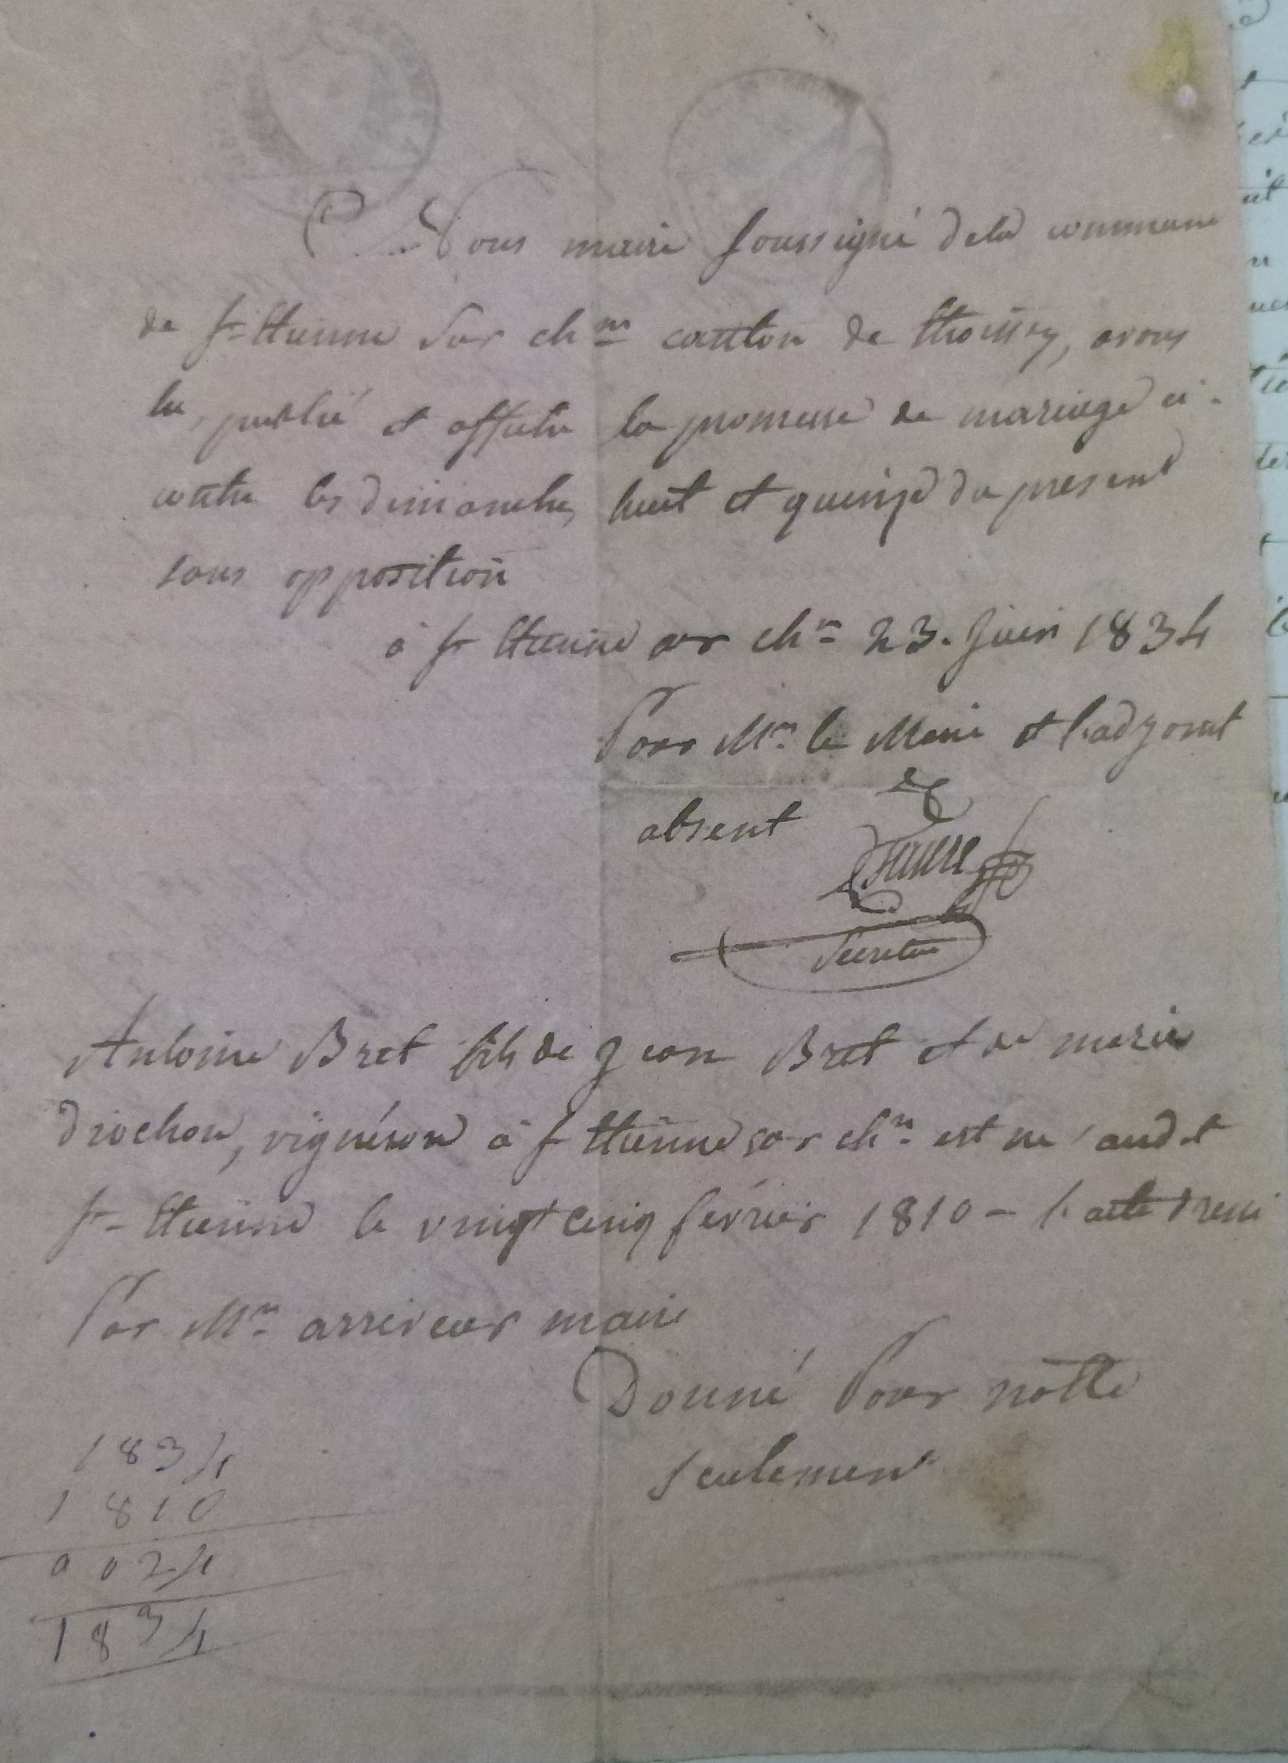 Nous maire soussigné dela commune
de St Etienne sur chne canton de thoissey, avons
lu, publié et affiché la promesse de mariage ci-
contre les dimanches huit et quinze du present
sans opposition
à St Etienne sur chne 23. Juin 1834
Pour Mr le Maire et l'adjoint
absent
Secretaire
Antoine Bret fils de Jean Bret et de marie
Drochon, vignéron à St Etienne sur chne est né audit
St-Etienne le vingt cinq février 1810 - l'acte dressé
Par Mr arriveur maire
Donné Pour notte
seulement
1834
1810
0024
1834